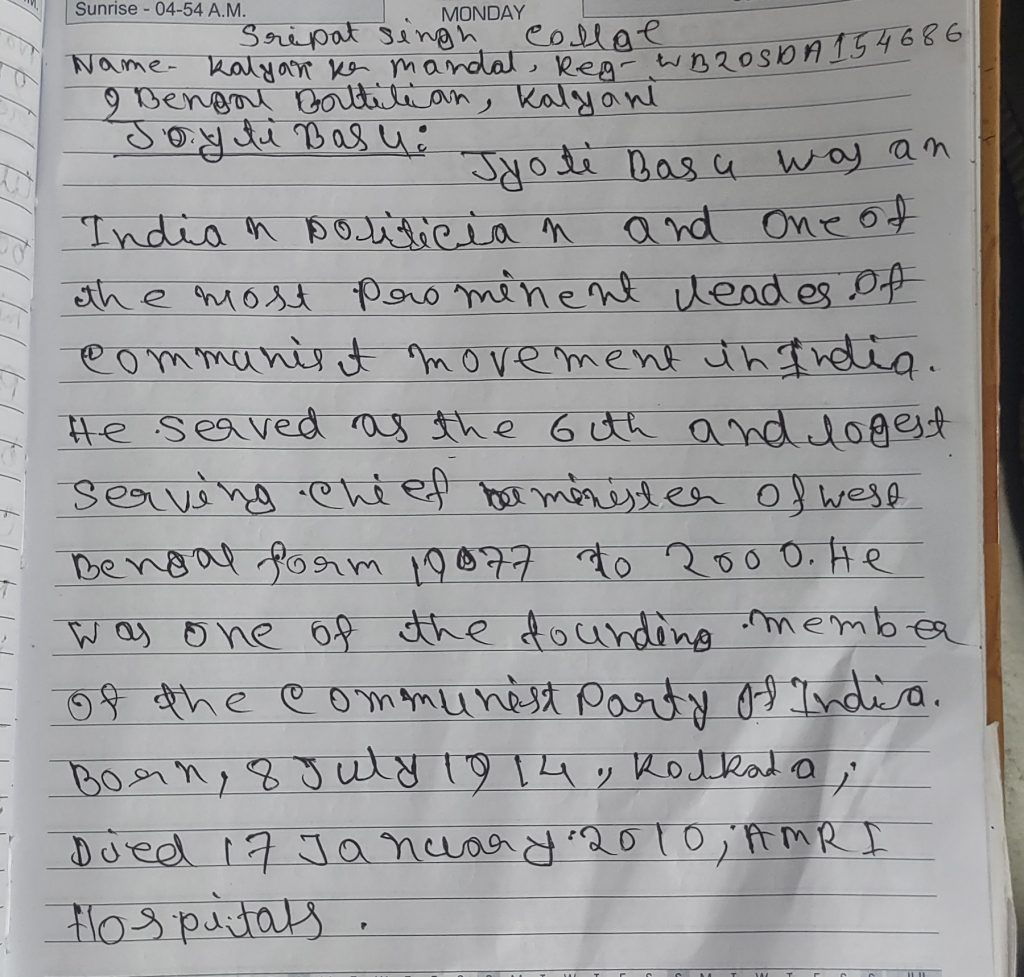 Sunrise - 04-54 A.M.
MONDAY
Sripat singh collge
Name- Kalyan kr mandal, Reg- WB20SDA154686
9 Bengal Battilian, Kalyani
Joyti Basu:
Jyoti Basu was an
Indian politician and one of
the most prominent leades of
communist movement in India.
He served as the 6th and logest
serving chief minister of west
Bengal form 1977 to 2000. He
was one of the founding member
of the communist Party of India.
Born, 8 July 1914, Kolkata,
Died 17 January 2010, AMRI
Hospitals.